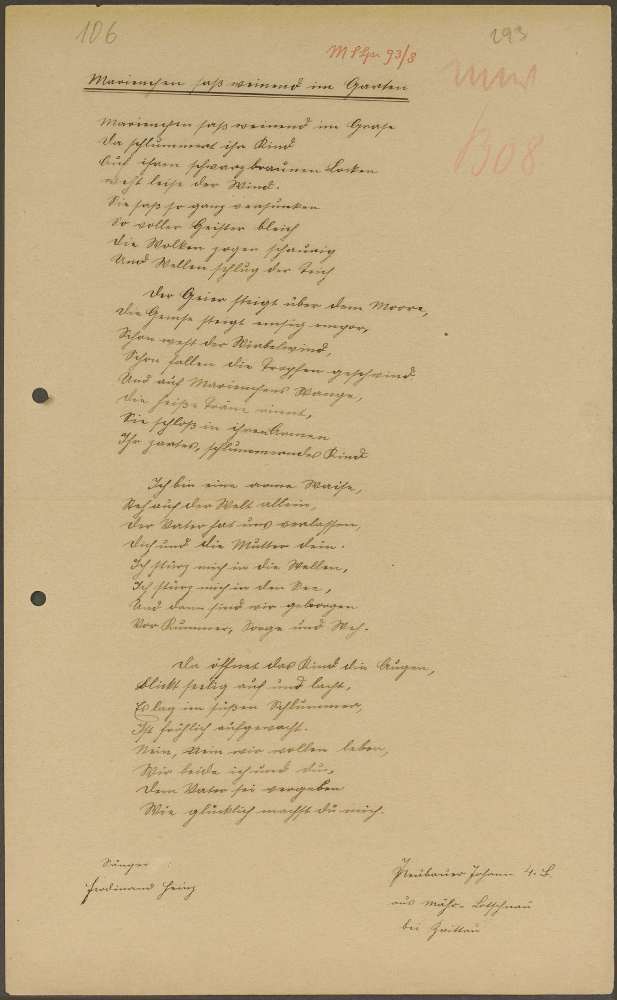 106
293
M 93/8
Marienchen saß weinend im Garten
B08
Marienchen saß weinend im Grase
Da schlummert ihr Kind
Auf ihren schwarzbraunen Locken
weht leise der Wind.
Sie saß so ganz versunken
So voller Geister bleich
Die Wolken zogen schaurig
Und Wellen schlug der Teich
Der Geier steigt über dem Moore,
Die Gemse steigt einsig empor,
Schon weht der Wirbelwind,
Schon fallen die Tropfen geschwind.
Und auf Marienchens Wange,
Die heiße Träne rinnt,
Sie schloß in ihren Armen
Ihr zartes, schlummerndes Kind
Ich bin eine arme Waise,
Steh auf der Welt allein,
Der Vater hat uns verlassen,
Dich und die Mutter dein.
Ich stürz mich in die Wellen,
Ich stürz mich in den See,
Und dann sind wir geborgen
Vor Kummer, Sorge und Weh.
Da öffnet das Kind die Augen,
Blickt seelig auf und lacht,
Es lag im süßen Schlummer,
Ist fröhlich aufgewacht.
Nein, Nein wir wollen leben,
Wir beide ich und du,
Dem Vater sei vergeben
Wie glücklich machst du mich.
Sänger:
Ferdinand Heinz
Neubauer Johann 4. B.
aus Mähr- Lotschnau
bei Zwittau